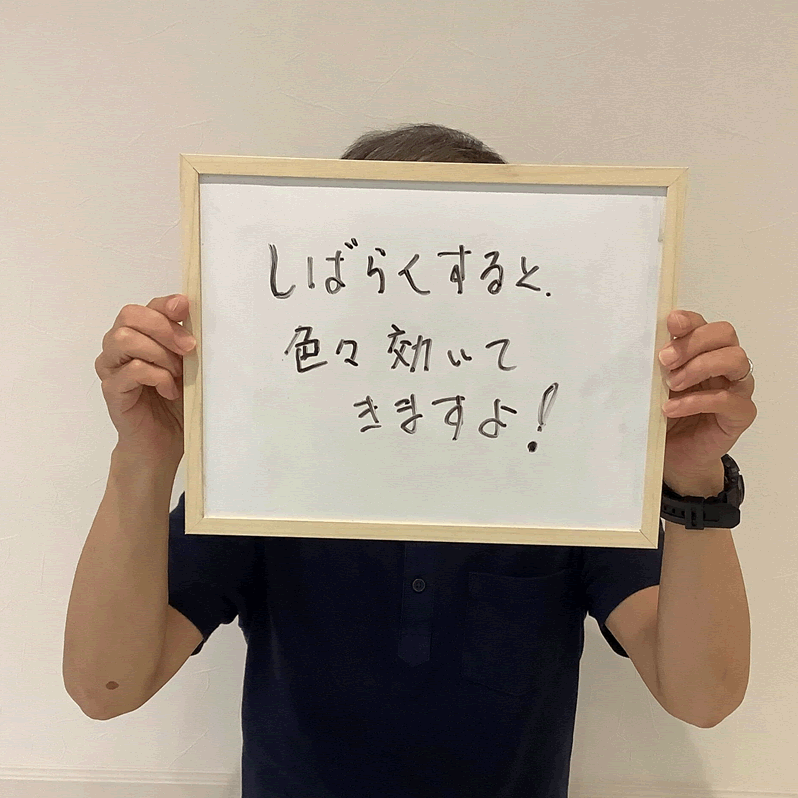 しばらくすると.
色々効いて
きますよ!